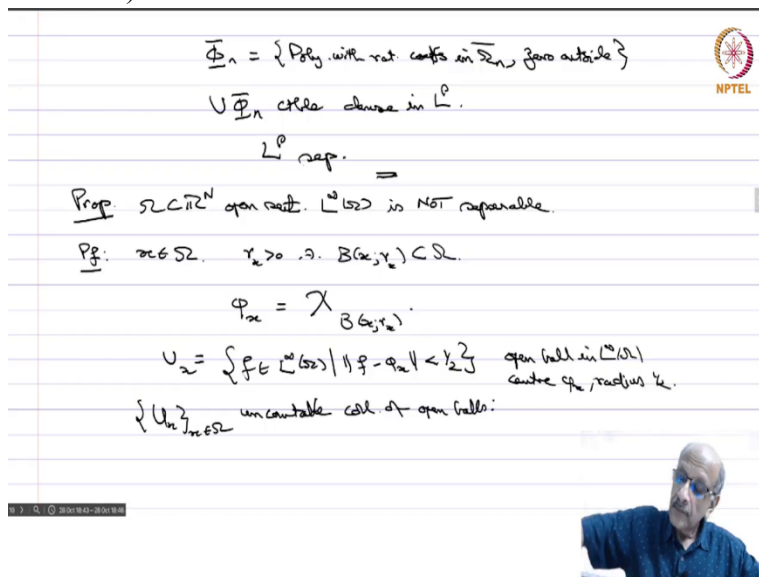 Φ̅ₙ = {Poly. with rat. coeffs in Ω̅ₙ, zero outside}
NPTEL
∪ Φ̅ₙ ctble dense in Lᵖ.
Lᵖ sep.
Prop. Ω ⊂ ℝᴺ open set. L^∞(Ω) is NOT separable.
Pf: x ∈ Ω. rₓ > 0 ∋. B(x; rₓ) ⊂ Ω.
φₓ = χ_{B(x; rₓ)}.
Uₓ = {f ∈ L^∞(Ω) | ‖f - φₓ‖ < ½} open ball in L^∞(Ω)
centre φₓ, radius ½.
{Uₓ}_{x∈Ω} uncountable coll. of open balls:
28 Oct 18:43 – 28 Oct 18:46